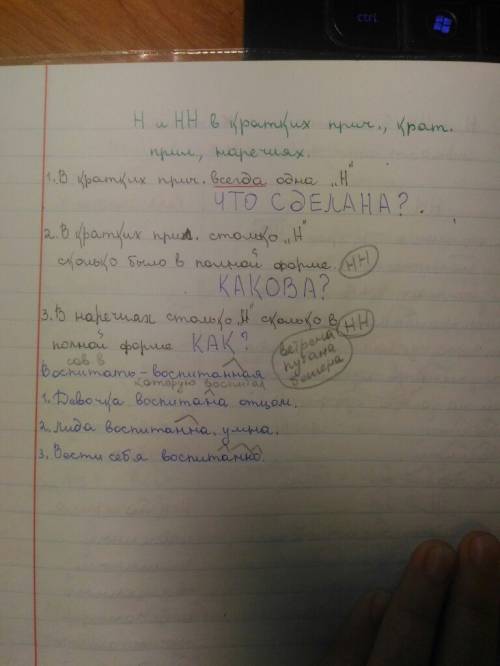 ctrl
Н и НН в кратких прич., крат.
прил., наречиях.
1. В кратких прич. всегда одна „Н"
ЧТО СДЕЛАНА?.
2. В кратких прил. столько „Н"
сколько было в полной форме. НН
КАКОВА?
3. В наречиях столько „Н" сколько в НН
полной форме КАК?
ветрена
путана
сов. в
воспитать – воспитанная
которую воспитал
1. Девочка воспитана отцом.
2. Лида воспитанна, умна.
3. Вести себя воспитанно.